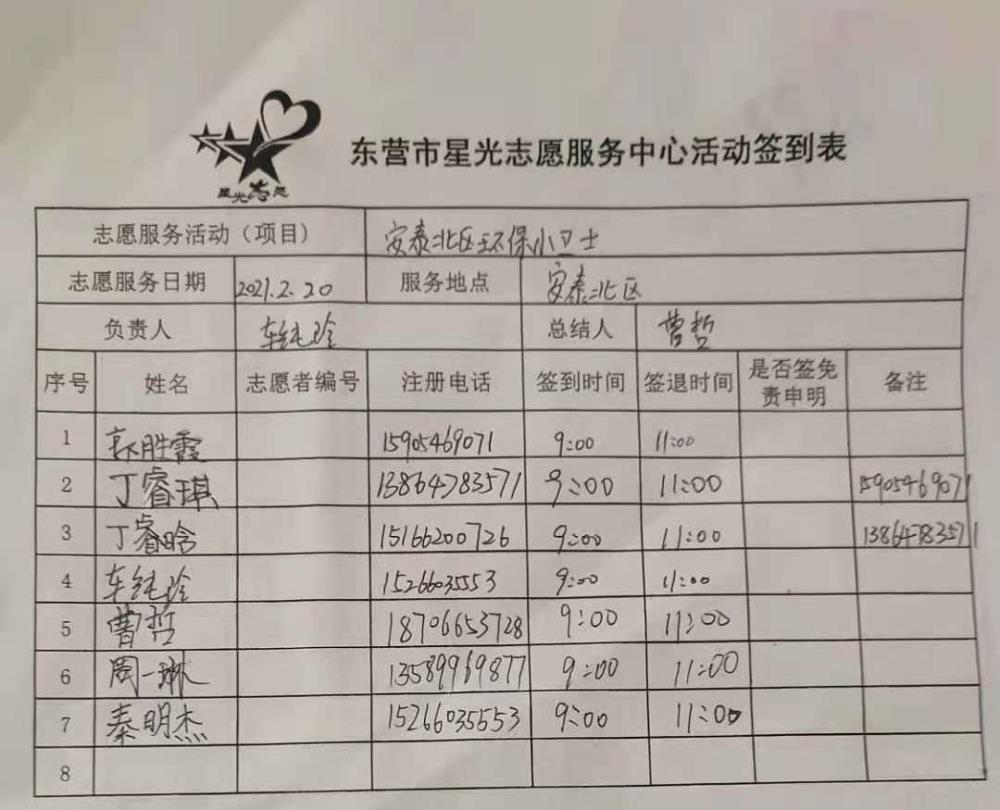 星光志愿
东营市星光志愿服务中心活动签到表
志愿服务活动（项目） 安泰北区环保小卫士
志愿服务日期 2021.2.20 服务地点 安泰北区
负责人 车纯玲 总结人 曹哲
序号 姓名 志愿者编号 注册电话 签到时间 签退时间 是否签免责申明 备注
1 胜霞 15905469071 9:00 11:00
2 丁睿琪 13864783571 9:00 11:00 15905469071
3 丁睿晗 15166200726 9:00 11:00 13864783571
4 车纯玲 15266035553 9:00 11:00
5 曹哲 18706653728 9:00 11:00
6 周一琳 13589969877 9:00 11:00
7 秦明杰 15266035553 9:00 11:00
8